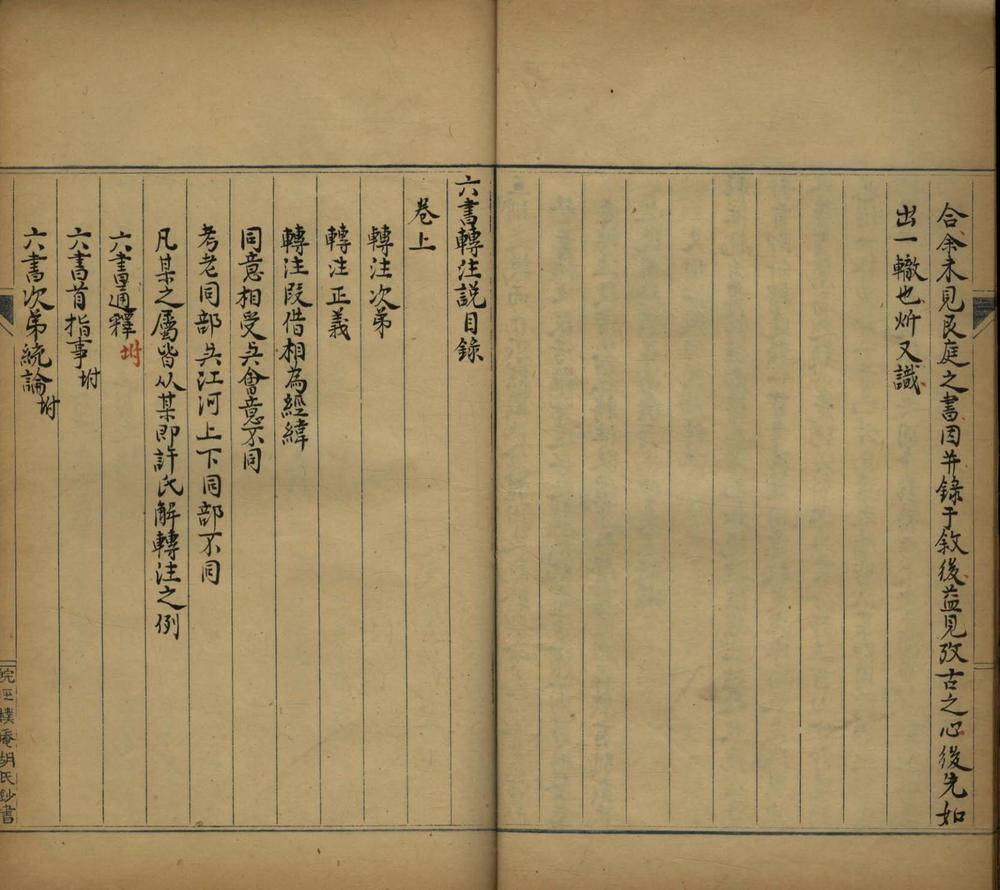 合余未見艮庭之書因并錄于敘後益見攷古之心後先如
出一轍也炘又識
六書轉注説目錄
卷上
轉注次弟
轉注正義
轉注叚借相為經緯
同意相受与會意不同
考老同部与江河上下同部不同
凡某之屬皆从某即許氏解轉注之例
六書通釋坿
六書首指事坿
六書次弟統論坿
皖涇樸庵胡氏鈔書